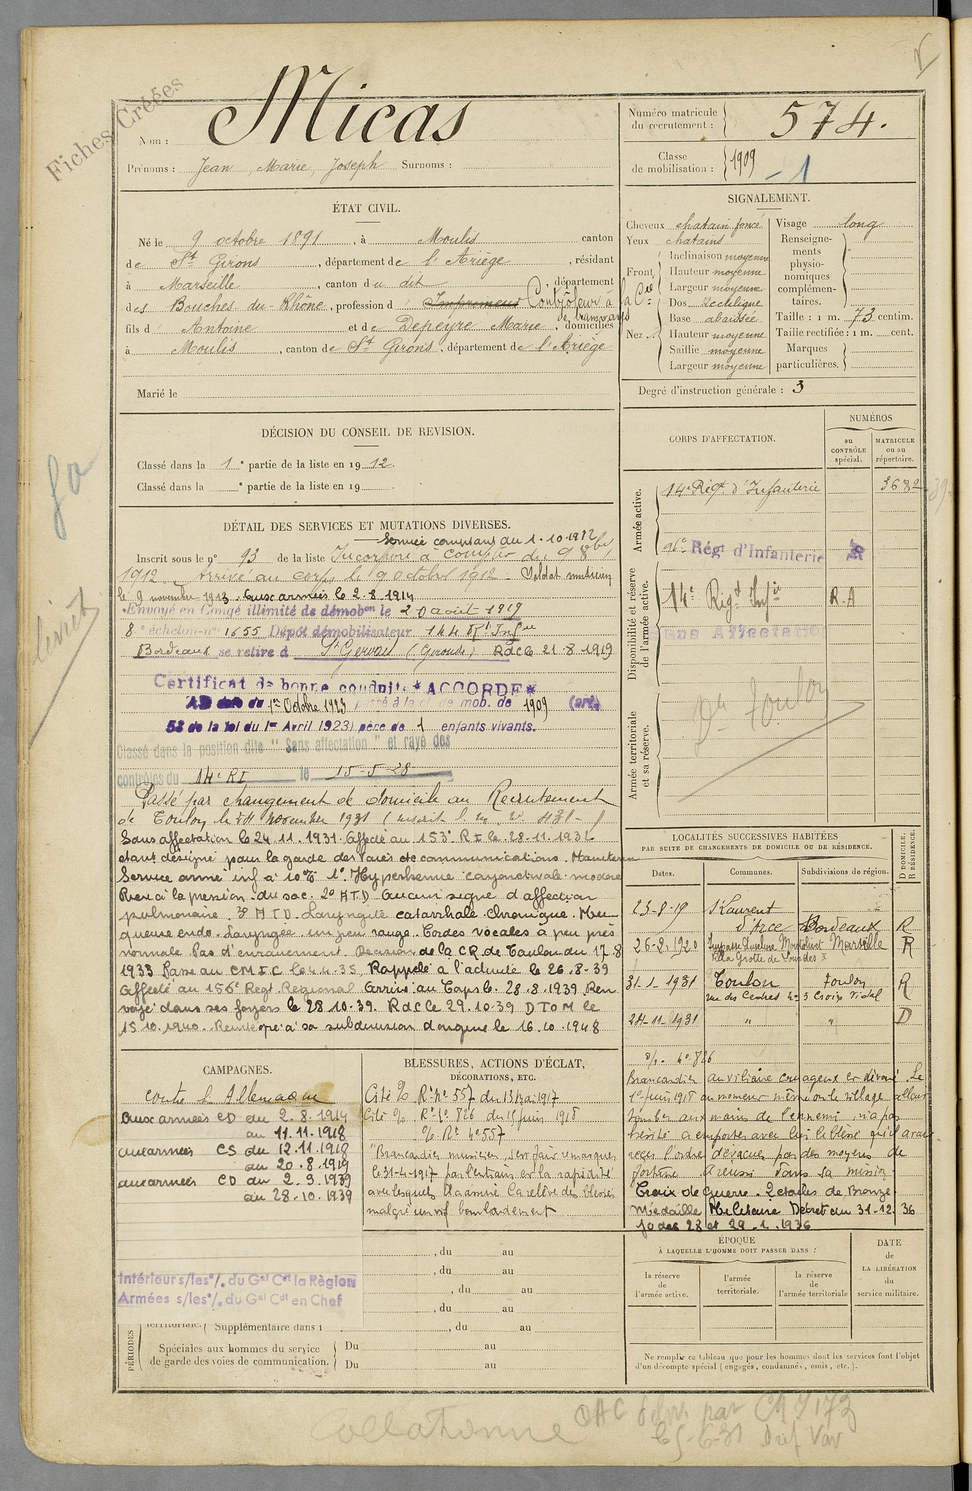 Fiches Créées
Nom : Micas
Prénoms : Jean, Marie, Joseph Surnoms :
Numéro matricule du recrutement : 574.
Classe de mobilisation : 1909 - 1
ÉTAT CIVIL.
Né le 9 octobre 1891, à Moulis canton
de St Girons, département de l'Ariège, résidant
à Marseille, canton du dit, département
des Bouches-du-Rhône, profession d Contrôleur à la Cie de tramways
fils d' Antoine et de Depeyre Marie, domiciliés
à Moulis, canton de St Girons, département de l'Ariège
Marié le
SIGNALEMENT.
Cheveux chatain foncé
Yeux chatains
Front Inclinaison moyenne
Hauteur moyenne
Largeur moyenne
Nez Dos rectiligne
Base abaissée
Hauteur moyenne
Saillie moyenne
Largeur moyenne
Visage long
Renseignements physionomiques complémentaires.
Taille : 1 m. 73 centim.
Taille rectifiée : 1 m. cent.
Marques particulières.
Degré d'instruction générale : 3
DÉCISION DU CONSEIL DE REVISION.
Classé dans la 1e partie de la liste en 1912.
Classé dans la e partie de la liste en 19
DÉTAIL DES SERVICES ET MUTATIONS DIVERSES.
Service comptant du 1-10-1912
Inscrit sous le n° 93 de la liste Incorporé à compter du 9 8bre
1912. Arrivé au corps le 9 octobre 1912. Soldat musicien
le 9 novembre 1913. Aux armées le 2.8.1914
Envoyé en Congé illimité de démobon le 20 août 1919
8e échelon n° 1655 Dépôt démobilisateur 144 Rt Infrie
Bordeaux se retire à St Gervais (Gironde) RdC le 21.8.1919
Certificat de bonne conduite *ACCORDÉ*
du 1er Octobre 1923 passé à la cl de mob. de 1909 (art.
58 de la loi du 1er Avril 1923) père de 1 enfants vivants.
Classé dans la position dite "Sans affectation" et rayé des
contrôles du 14e RI le 15-5-28
Passé par changement de domicile au Recrutement
de Toulon le 24 novembre 1931
Sans affectation le 24.11.1931. Affecté au 153e R I le 28.11.1932
étant désigné pour la garde des voies de communications. Maintenu
Service armé inf à 10% 1° Hyperhemie conjonctivale modérée
2° A.T.D. Aucun signe d'affection
pulmonaire. 3° A.T.D. Laryngite catarrhale chronique. Muqueuse
endo. Laryngée un peu rouge. Cordes vocales à peu près
normale. Pas d'enrouement. Decision de la CR de Toulon du 17.8
1933 Passé au CMIC le 4.4.35. Rappelé à l'activité le 26.8.39
Affecté au 156e Regt Regional Arrivé au Corps le 28.8.1939. Renvoyé
dans ses foyers le 28.10.39. RdC le 29.10.39 DTOM le
15.10.1940. à sa subdivision d'origine le 16.10.1948
CORPS D'AFFECTATION.
NUMÉROS
au CONTRÔLE spécial.
MATRICULE ou au répertoire.
Armée active.
14e Régt d'Infanterie 3682
96e Régt d'Infanterie
Disponibilité et réserve de l'armée active.
14e Régt Infie R.A
Sans Affectation
Armée territoriale et sa réserve.
Dn Toulon
LOCALITÉS SUCCESSIVES HABITÉES
PAR SUITE DE CHANGEMENTS DE DOMICILE OU DE RÉSIDENCE.
Dates. Communes. Subdivisions de région. D DOMICILE. R RÉSIDENCE.
23-8-19 St Laurent d'Arce Bordeaux R
26-8-1920 Marseille R
31-1-1931 Toulon Toulon R
24-11-1931 " " D
CAMPAGNES.
contre l'Allemagne
Aux armées CD du 2.8.1914
au 11.11.1918
aux armées CS du 12.11.1918
au 20.8.1919
aux armées CD du 2.9.1939
au 28.10.1939
Intérieur s/les o/. du Gal Cdt la Région
Armées s/les o/. du Gal Cdt en Chef
BLESSURES, ACTIONS D'ÉCLAT,
DÉCORATIONS, ETC.
Cité % Rt n° 557 du 13 Mai 1917
Cité % Rt n° 826 du 15 juin 1918
% Rt n° 557
"Brancardier musicien, s'est fait remarquer
le 31-4-1917 par l'entrain et la rapidité
avec lesquels il a assuré la relève des blessés
malgré un vif bombardement
% n° 826
Brancardier auxiliaire courageux et dévoué. Le
1er juin 1918 au moment même où le village allait
tomber aux mains de l'ennemi n'a pas
hésité à emporter avec lui le blessé qu'il avait
reçu l'ordre d'évacuer par des moyens de
fortune. A reussi dans sa mission
Croix de Guerre. 2 étoiles de Bronze.
Médaille Militaire Décret du 31-12-36
Jo des 28 et 29.1.1936
PÉRIODES
, du au
, du au
, du au
, du au
territoriale. Supplémentaire dans l , du au
Spéciales aux hommes du service de garde des voies de communication. Du au
Du au
ÉPOQUE
À LAQUELLE L'HOMME DOIT PASSER DANS :
la réserve de l'armée active.
l'armée territoriale.
la réserve de l'armée territoriale
DATE de LA LIBÉRATION du service militaire.
Ne remplir ce tableau que pour les hommes dont les services font l'objet
d'un décompte spécial (engagés, condamnés, omis, etc.).
Collationné